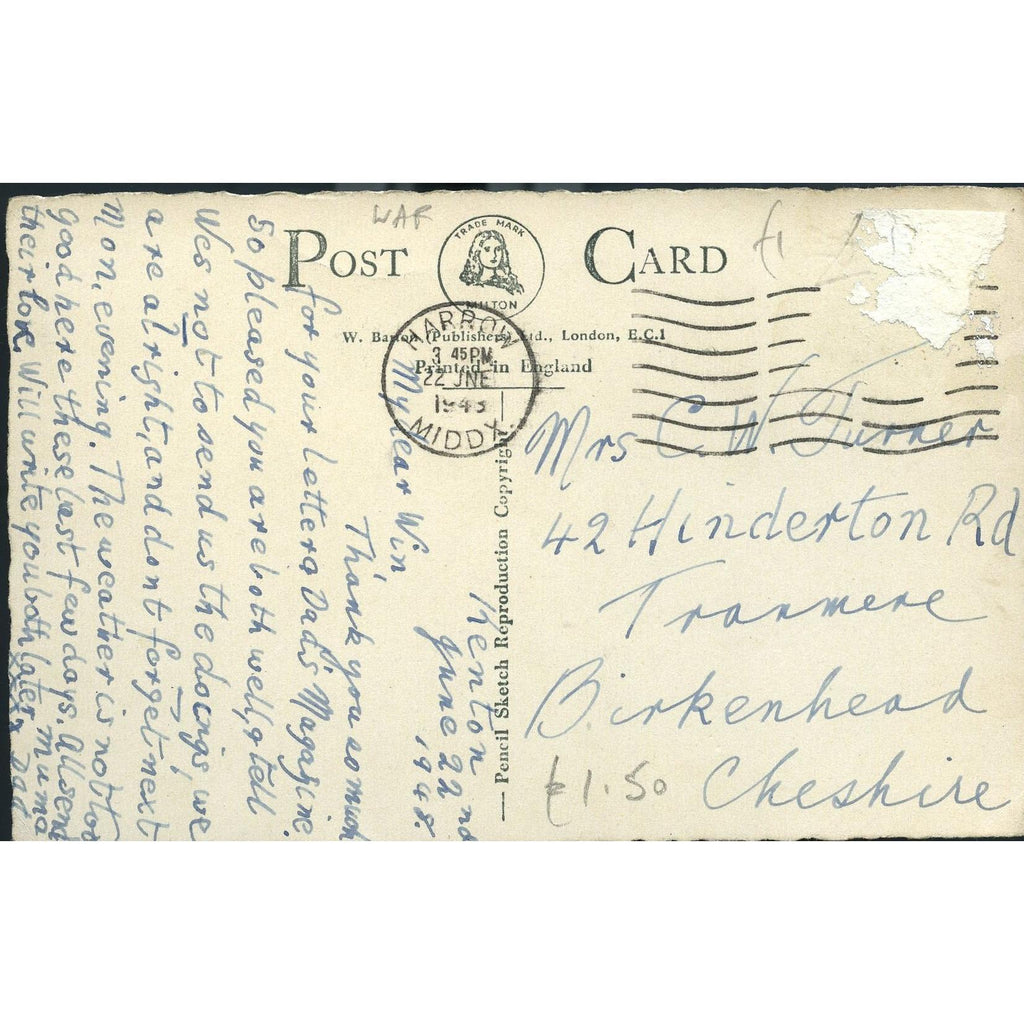 WAR
POST CARD
£1
TRADE MARK
MILTON
W. Barton (Publishers) Ltd., London, E.C.1
Printed in England
HARROW
3 45 PM
22 JNE
1948
MIDDX
— Pencil Sketch Reproduction Copyright
Kenton
June 22nd
1948.
My dear Win,
Thank you so much
for your letter & Dad's Magazine.
So pleased you are both well, & tell
Wes not to send us the doings, we
are alright, and dont forget next
Mon, evening. The weather is not too
good here these last few days. All send
their love. Will write you both later, Mum &
xxxx Dad
Mrs C. W. Turner
42 Hinderton Rd
Tranmere
Birkenhead
Cheshire
£1.50